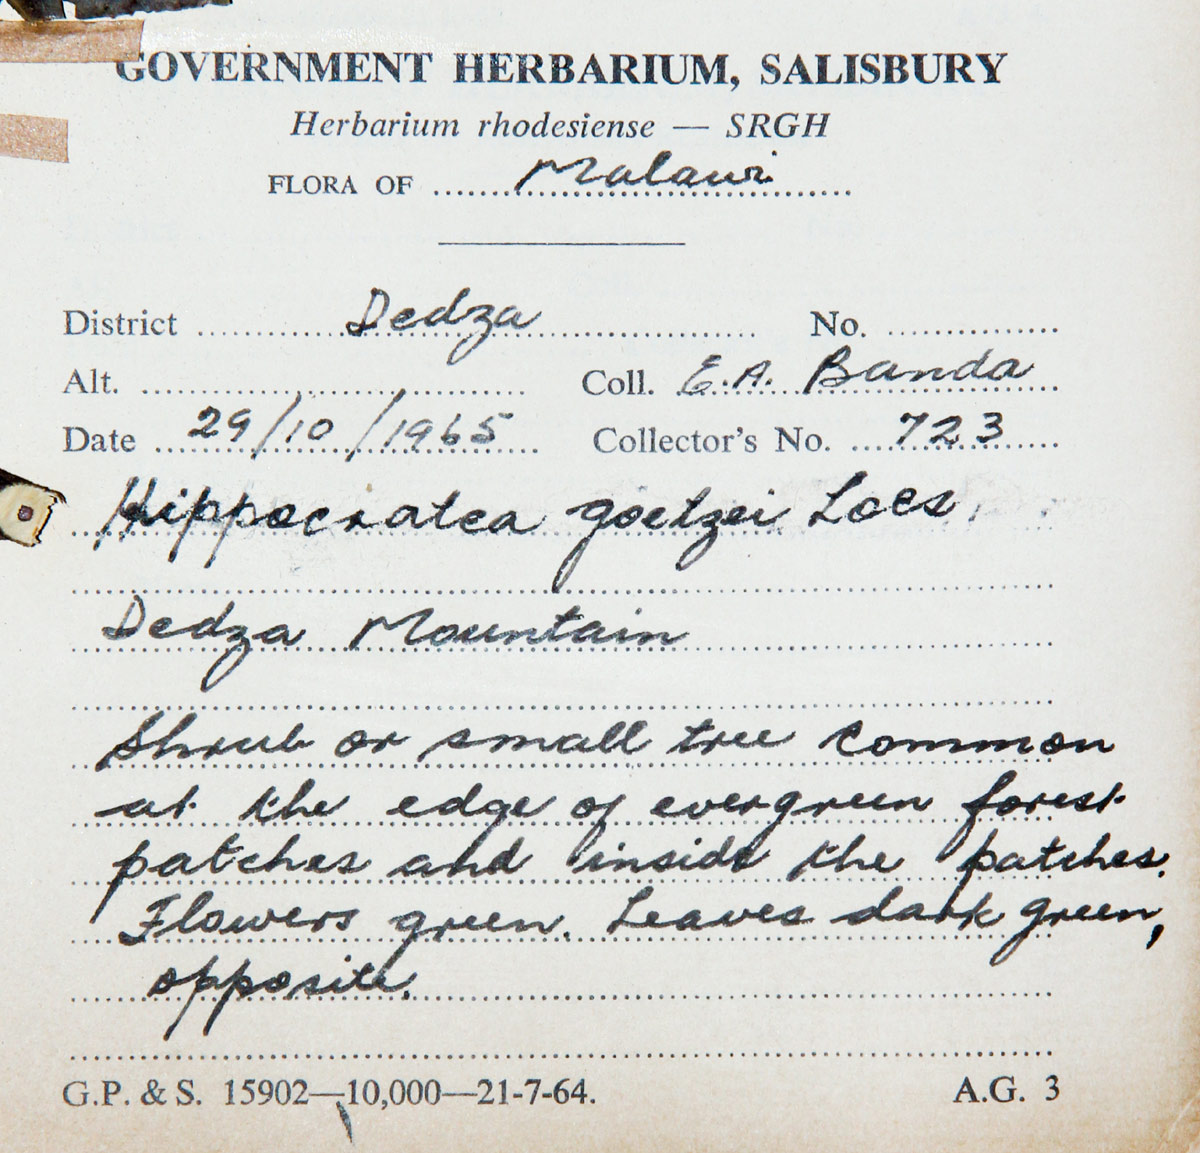 GOVERNMENT HERBARIUM, SALISBURY
Herbarium rhodesiense — SRGH
FLORA OF Malawi
District Dedza No.
Alt. Coll. E.A. Banda
Date 29/10/1965 Collector's No. 723
Hippocratea goetzei Loes
Dedza Mountain
Shrub or small tree common
at the edge of evergreen forest
patches and inside the patches.
Flowers green. Leaves dark green,
opposite.
G.P. & S. 15902—10,000—21-7-64. A.G. 3